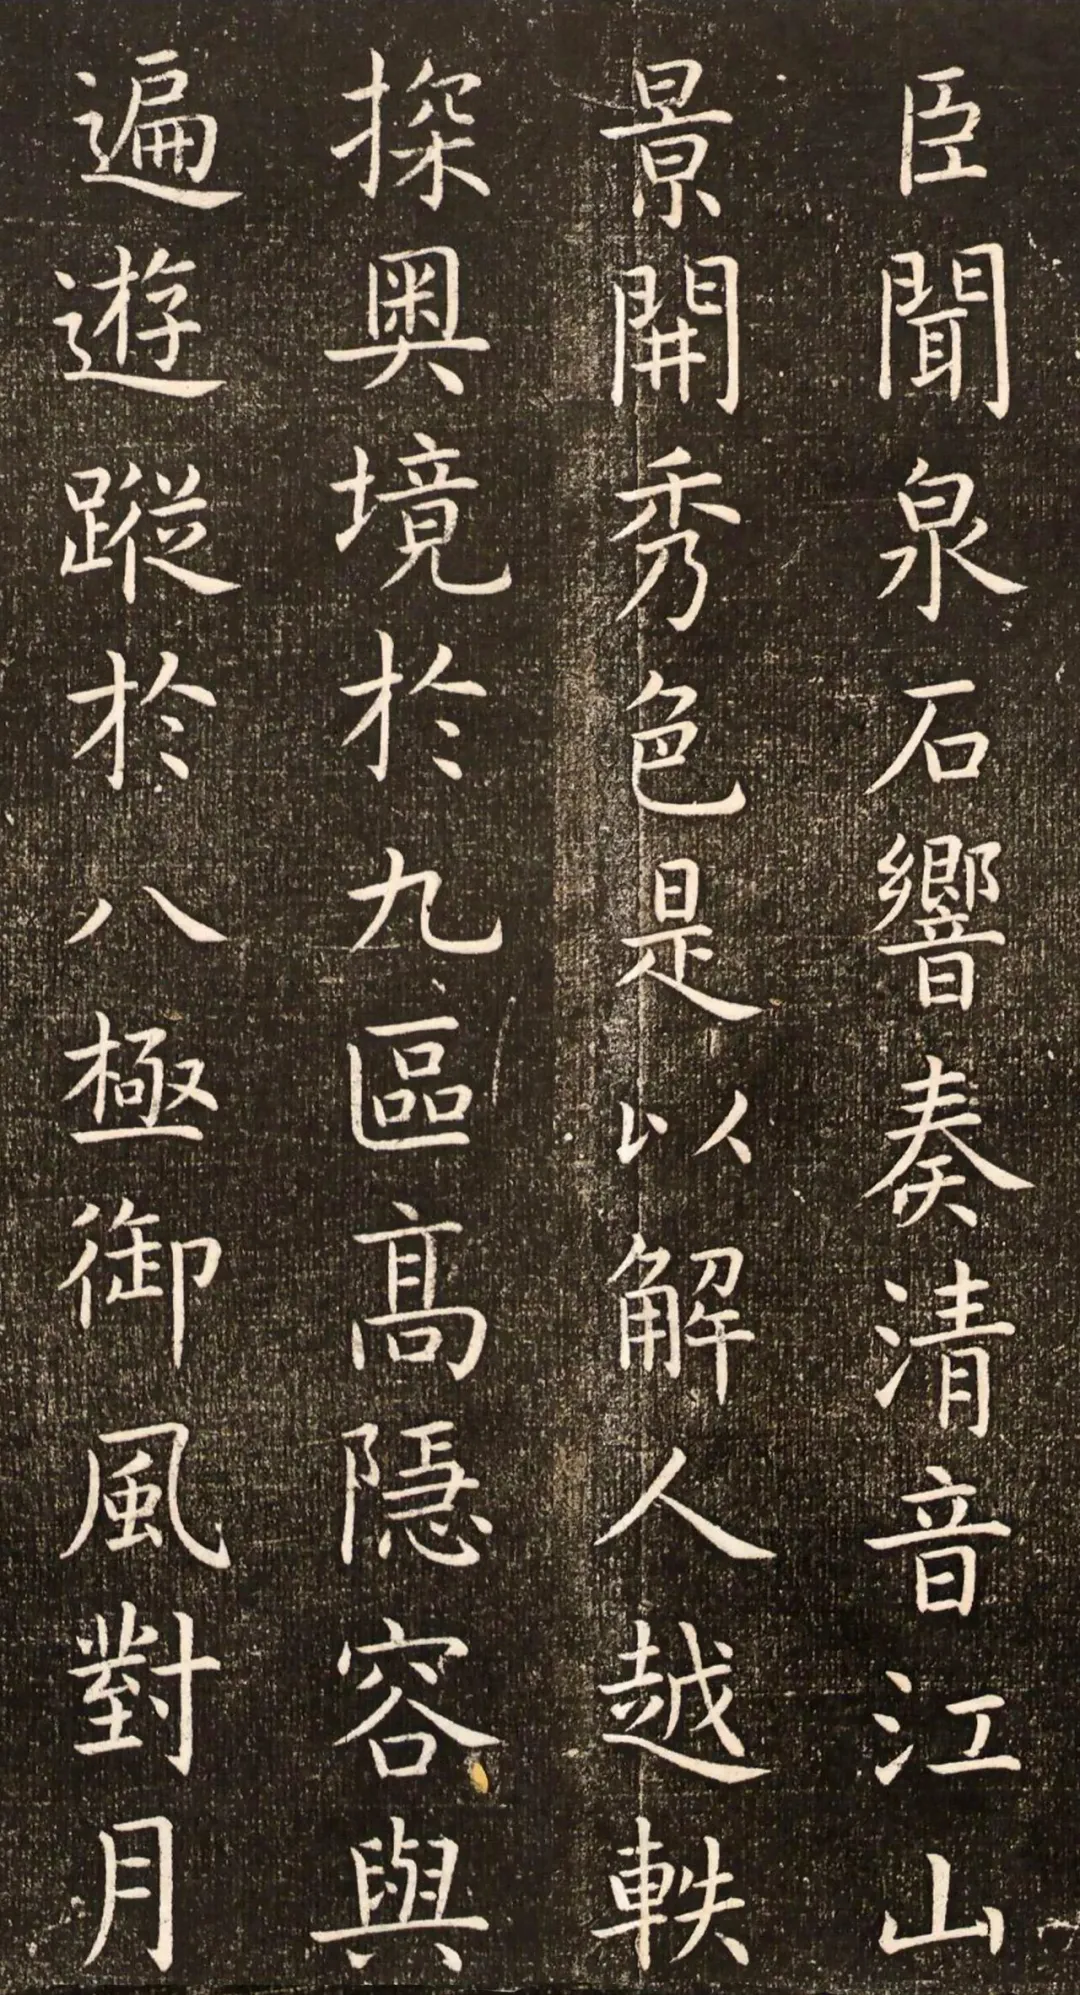 臣聞泉石響奏清音江山
景開秀色是以解人越軼
探奧境於九區高隱容與
遍遊蹤於八極御風對月